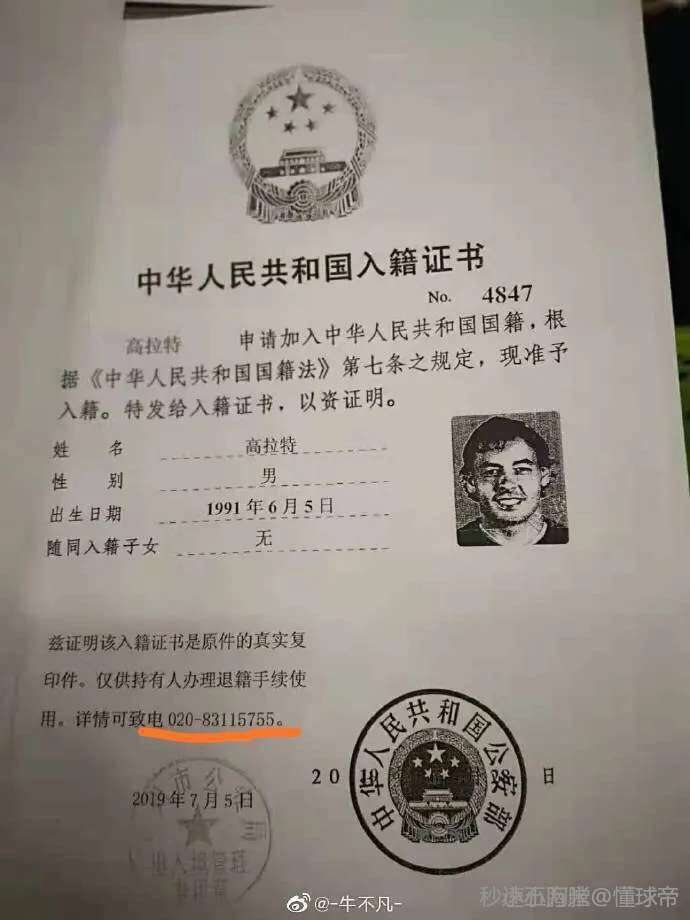 中华人民共和国入籍证书
No. 4847
高拉特 申请加入中华人民共和国国籍，根
据《中华人民共和国国籍法》第七条之规定，现准予
入籍。特发给入籍证书，以资证明。
姓 名 高拉特
性 别 男
出生日期 1991年6月5日
随同入籍子女 无
兹证明该入籍证书是原件的真实复
印件。仅供持有人办理退籍手续使
用。详情可致电 020-83115755。
中华人民共和国公安部
20 日
2019年7月5日
@-牛不凡-
@懂球帝